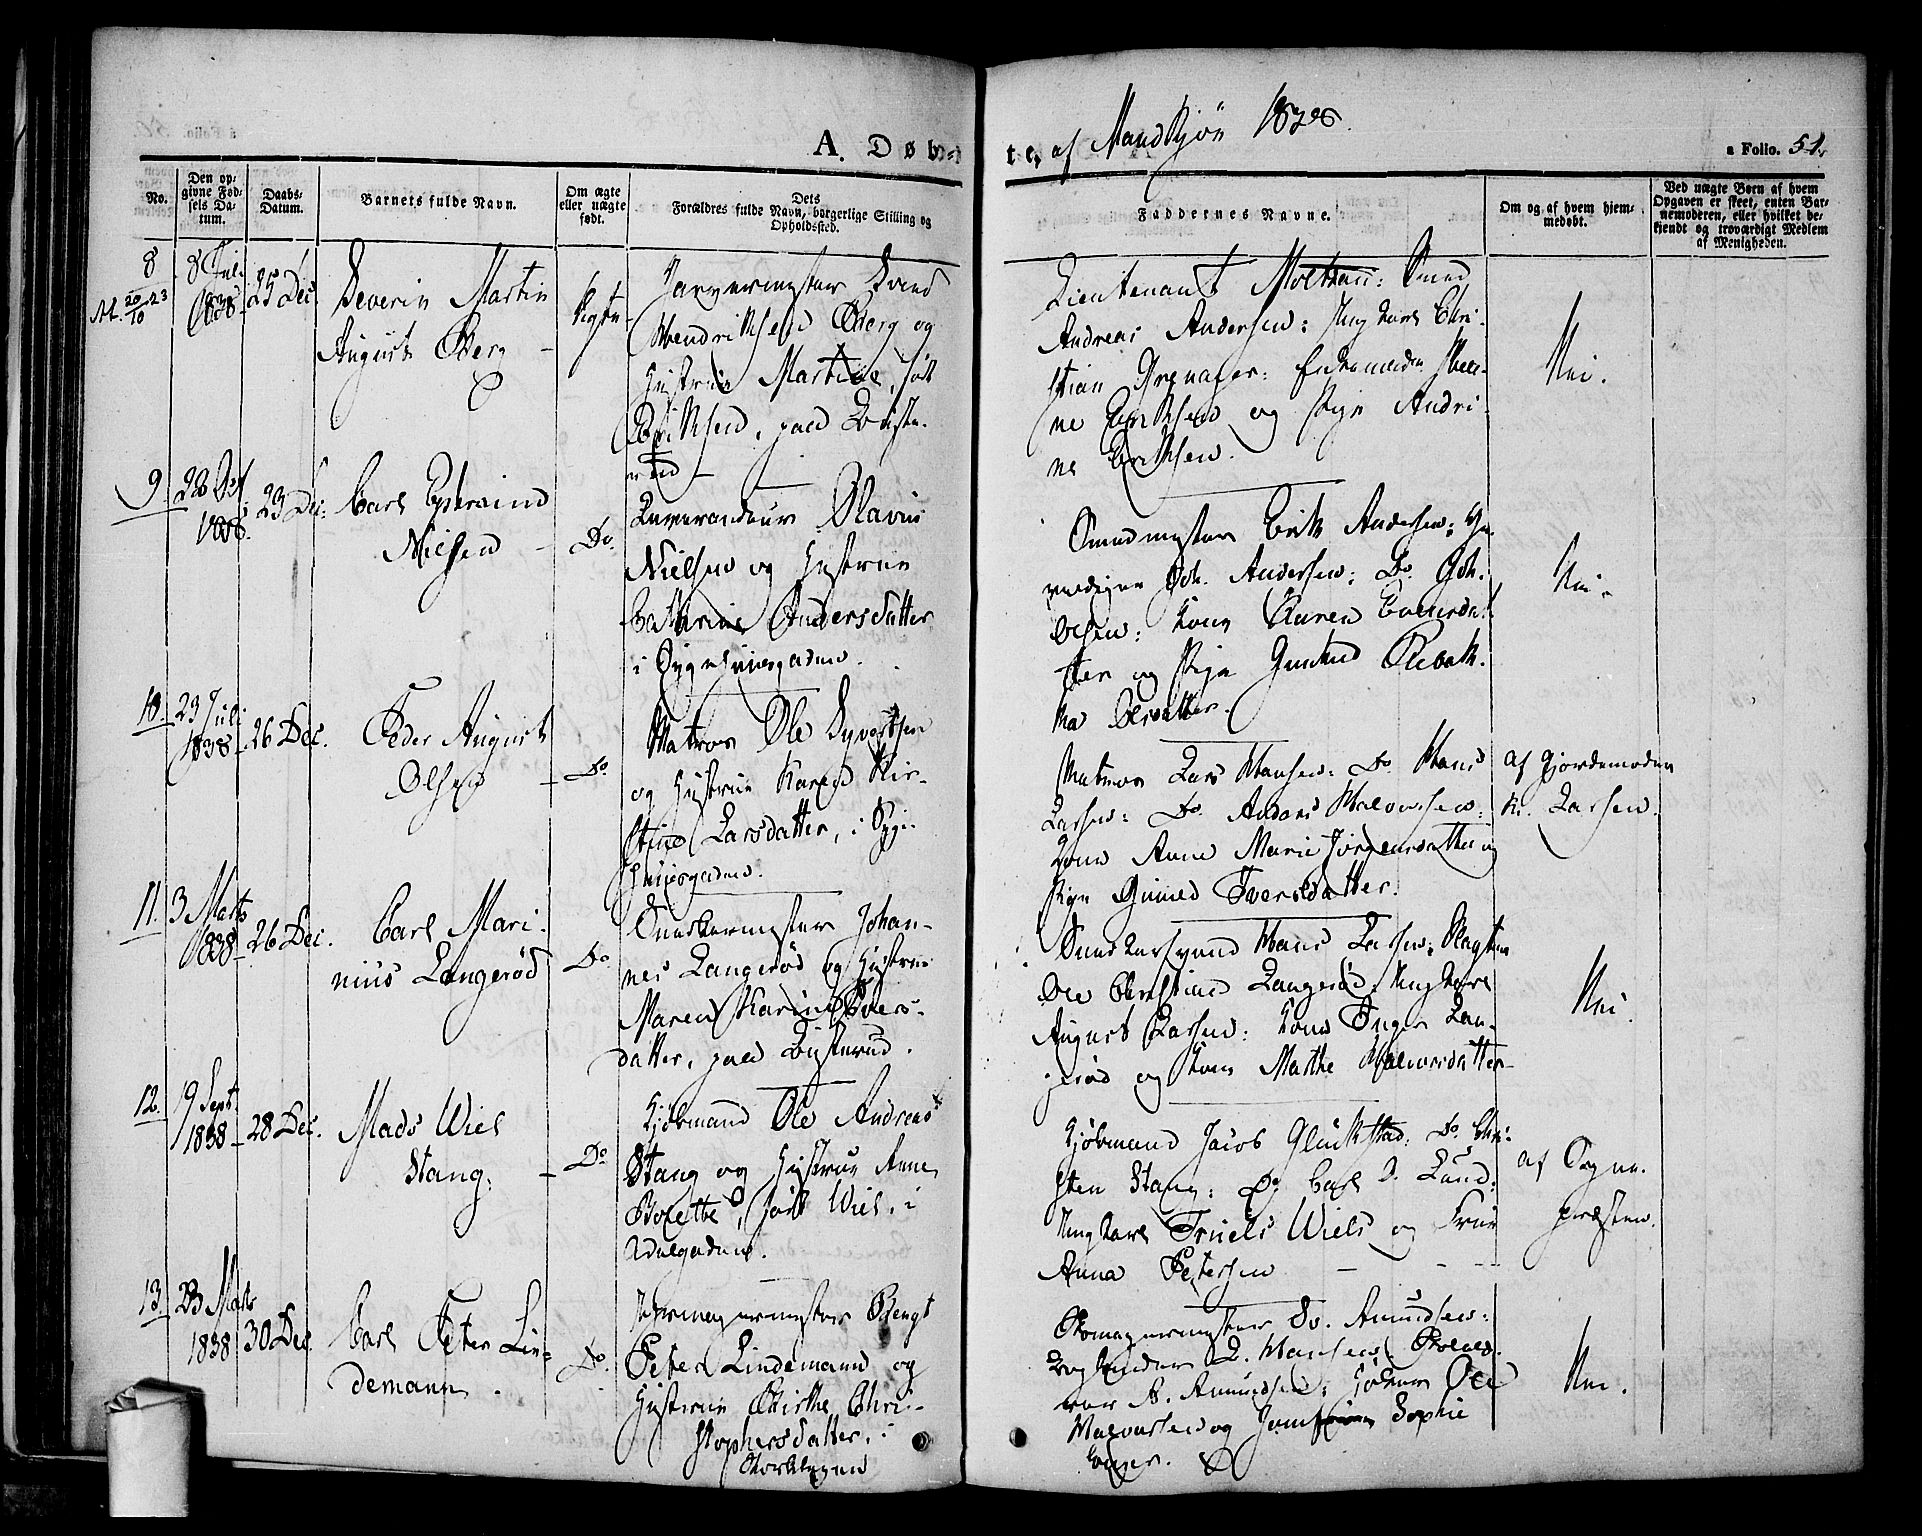 A. Døbte, af Mandkjøn 1838.
a Folio. 51.
No.
Den opgivne Fødsels Datum.
Daabs-Datum.
Barnets fulde Navn.
Om ægte eller uægte født.
Dets Forældres fulde Navn, borgerlige Stilling og Opholdssted.
Faddernes Navne.
Om og af hvem hjemmedøbt.
Ved uægte Børn af hvem Opgaven er skeet, enten Barnemoderen, eller hvilket bekjendt og troværdigt Medlem af Menigheden.
8
8 Juli
1838
25 Dec
Severin Martin
August Berg
Ægte
Farvermester Svend
Hendriksen Berg og
Hustrue Martine, født
Eriksen, paa
Lieutenant
Andreas Andersen: Ungkarl Chri-
stian
ne Eriksen og Pige Andri-
ne Eriksen.
Nei.
9
28 Oct
1838.
23 Dec.
Carl
Nielsen
Do.
Olavus
Nielsen og Hustrue
Cathrine Andersdatter
i Sygehuusgaden.
Smedmester Erik Andersen;
Joh. Andersen; Do. Joh.
Olsen: Kone Karen
tter og Pige
Olsdatter.
Nei.
10.
23 Juli
1838
26 Dec.
Peder August
Olsen
Do.
Matros Ole Syvertsen
og Hustrue Karen Kir-
stine Larsdatter, i Syge-
huusgaden.
Matros Lars Hansen: Do. Hans
Larsen: Do. Anders Halvorsen:
Kone Anne Marie Jørgensdatter og
Pige Gunild Iversdatter.
af Gjordemoder
K. Larsen.
11.
3 Marts
1838
26 Dec.
Carl Mari-
nius Langerød
Do.
Snedkermester Johan-
nes Langerød og Hustrue
Maren Karine Ivers-
datter, paa
Snedkersvend Hans Larsen:
Ole Christian Langerød, Ungkarl
August Larsen: Kone Inger Lan-
gerød og Kone Marthe Halvorsdatter
Nei.
12.
19 Sept
1838
28 Dec.
Mads Wiel
Stang.
Do
Kjøbmand Ole Andreas
Stang og Hustrue Anne
Bolette, født Wiel, i
Kjøbmand Jacob Glückstad: Do. Chri-
sten Stang: Do Carl D. Lund:
Ungkarl Truels Wiels og Frue
Anna Petersen
af Sogne-
præsten.
13.
23 Marts
1838
30 Dec.
Carl Peter Lin-
demann.
Do.
Bengt
Peter Lindemann og
Hustrue Birthe Chri-
stophersdatter, i
Skomagermester Sv. Amundsen:
Bogbinder L. Hansen:
A. Amundsen: Ole
Halvorsen og Jomfrue Sophie
Nei.